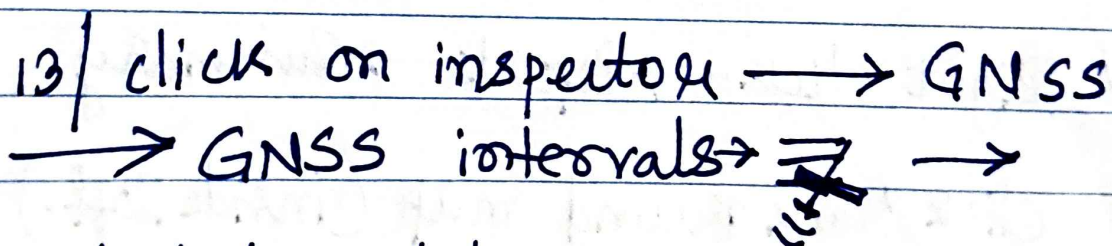 13| click on inspector → GNSS
→ GNSS intervals → →